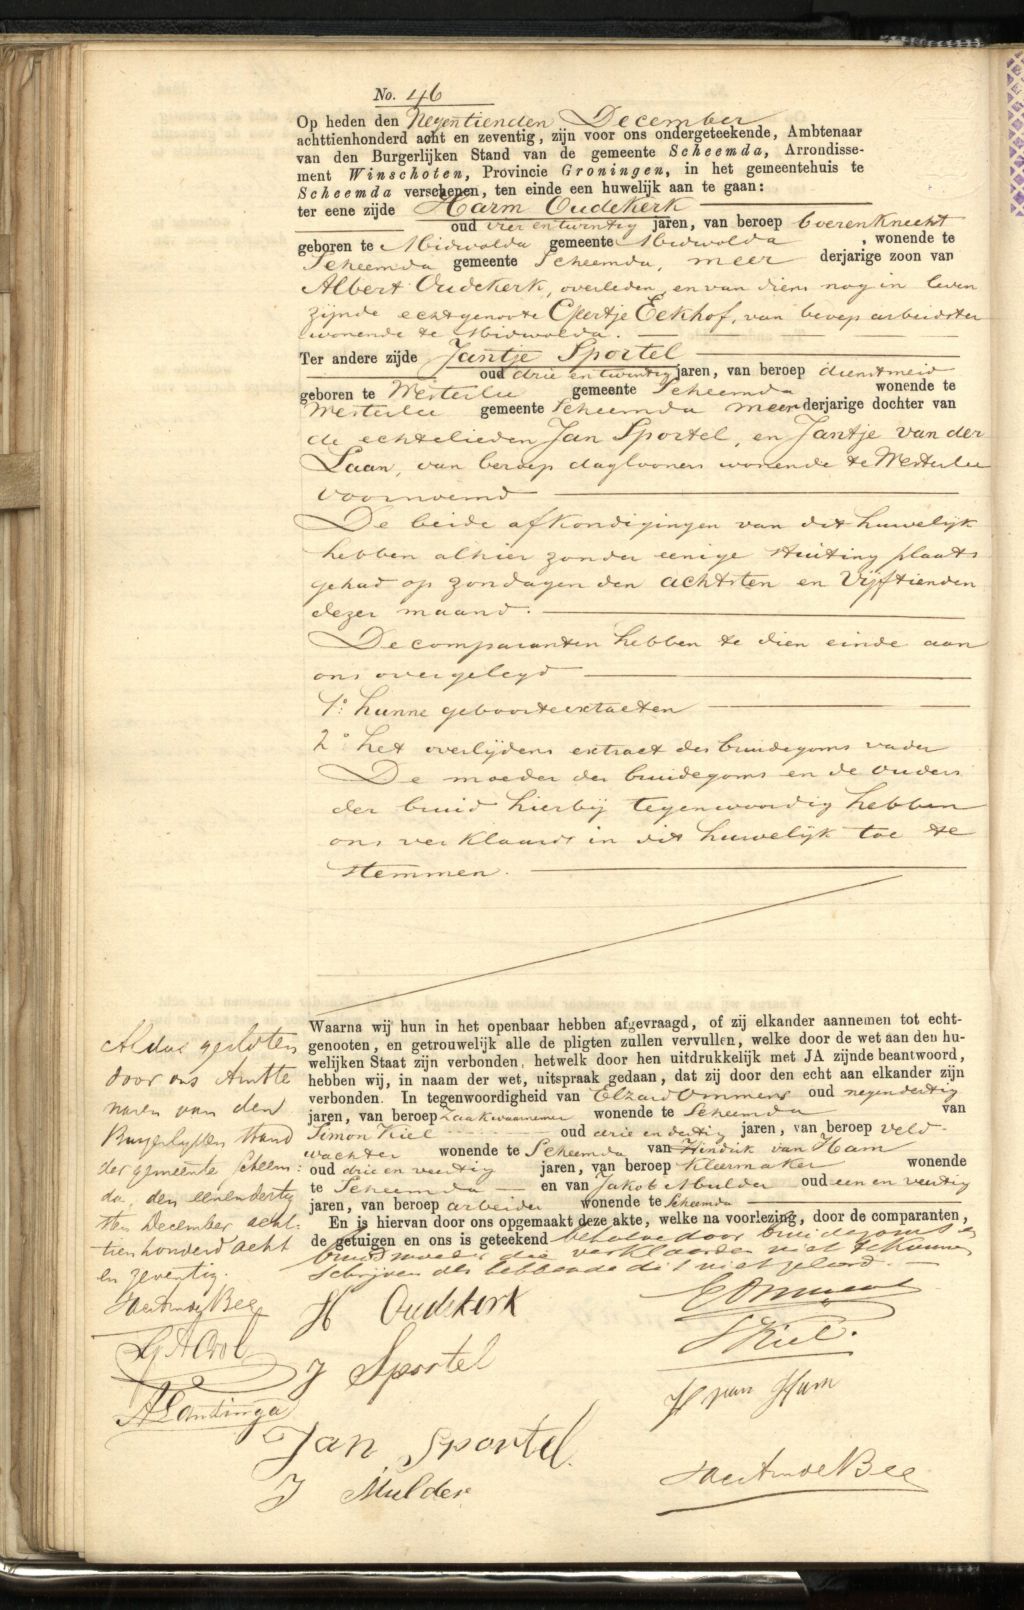 No. 46
Op heden den Negentienden December
achttienhonderd acht en zeventig, zijn voor ons ondergeteekende, Ambtenaar
van den Burgerlijken Stand van de gemeente Scheemda, Arrondisse-
ment Winschoten, Provincie Groningen, in het gemeentehuis te
Scheemda verschenen, ten einde een huwelijk aan te gaan:
ter eene zijde Harm Oudekerk
oud vier en twintig jaren, van beroep boerenknecht
geboren te Midwolda gemeente Midwolda, wonende te
Scheemda gemeente Scheemda, meerderjarige zoon van
Albert Oudekerk, overleden, en van diens nog in leven
zijnde echtgenoote Eekhof, van beroep arbeidster
wonende te Midwolda.
Ter andere zijde Jantje Sportel
oud drie en twintig jaren, van beroep dienstmeid
geboren te Westerlee gemeente Scheemda wonende te
Westerlee gemeente Scheemda meerderjarige dochter van
de echtelieden Jan Sportel, en Jantje van der
Laan, van beroep daglooners wonende te Westerlee
voornoemd
De beide afkondigingen van dit huwelijk
hebben alhier zonder eenige stuiting plaats
gehad op zondagen den achtsten en Vijftienden
dezer maand.
De comparanten hebben te dien einde aan
ons overgelegd
1o. hunne geboorteextracten
2o het overlijdens extract des bruidegoms vader
De moeder des bruidegoms en de ouders
der bruid hierbij tegenwoordig hebben
ons verklaard in dit huwelijk toe te
stemmen.
Waarna wij hun in het openbaar hebben afgevraagd, of zij elkander aannemen tot echt-
genooten, en getrouwelijk alle de pligten zullen vervullen, welke door de wet aan den hu-
welijken Staat zijn verbonden, hetwelk door hen uitdrukkelijk met JA zijnde beantwoord,
hebben wij, in naam der wet, uitspraak gedaan, dat zij door den echt aan elkander zijn
verbonden. In tegenwoordigheid van Elzard Ommens oud negendertig
jaren, van beroep Zaakwaarnemer wonende te Scheemda van
Simon Kiel oud drie en dertig jaren, van beroep veld-
wachter wonende te Scheemda van Hindrik van Ham
oud drie en veertig jaren, van beroep kleermaker wonende
te Scheemda en van Jakob Mulder oud een en veertig
jaren, van beroep arbeider wonende te Scheemda
En is hiervan door ons opgemaakt deze akte, welke na voorlezing, door de comparanten,
de getuigen en ons is geteekend behalve door bruidegoms en
bruids moeder die verklaarden niet te kunnen
schrijven als hebbende dit niet geleerd.
Aldus gesloten
door ons Ambte
naren van den
Burgerlijken Stand
der gemeente Scheem-
da, den eenendertig
sten December acht-
tienhonderd acht
en zeventig.
G A Crol
H Oudekerk
E Ommens
S Kiel.
J Sportel
H van Ham
Jan Sportel
J Mulder